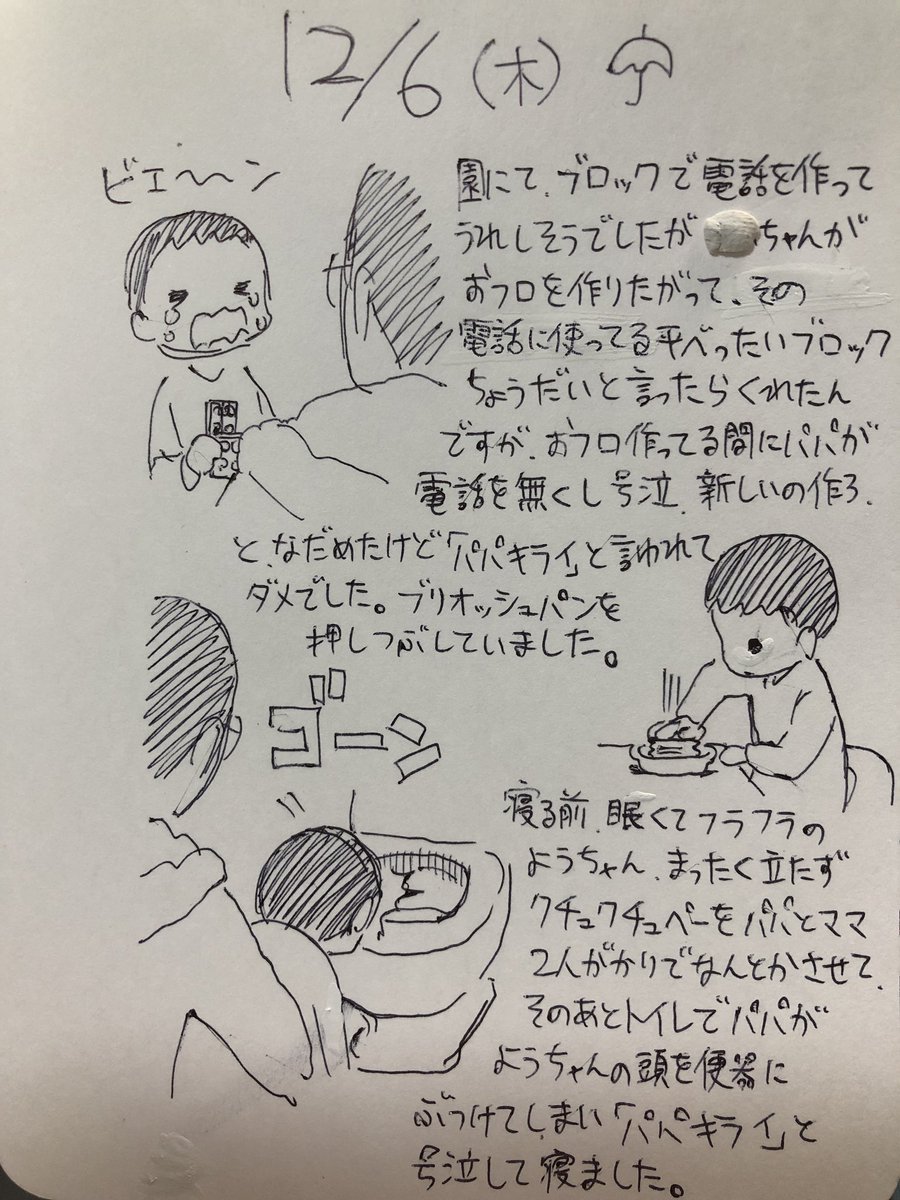 12/6(木)
ビエ〜〜ン
園にて、ブロックで電話を作って
うれしそうでしたが ちゃんが
おフロを作りたがって、その
電話に使ってる平べったいブロック
ちょうだいと言ったらくれたん
ですが、おフロ作ってる間にパパが
電話を無くし号泣、新しいの作ろ、
と、なだめたけど「パパキライ」と言われて
ダメでした。ブリオッシュパンを
押しつぶしていました。
ゴーン
寝る前、眠くてフラフラの
ようちゃん、まったく立たず
クチュクチュペーをパパとママ
2人がかりでなんとかさせて、
そのあとトイレでパパが
ようちゃんの頭を便器に
ぶつけてしまい「パパキライ」と
号泣して寝ました。